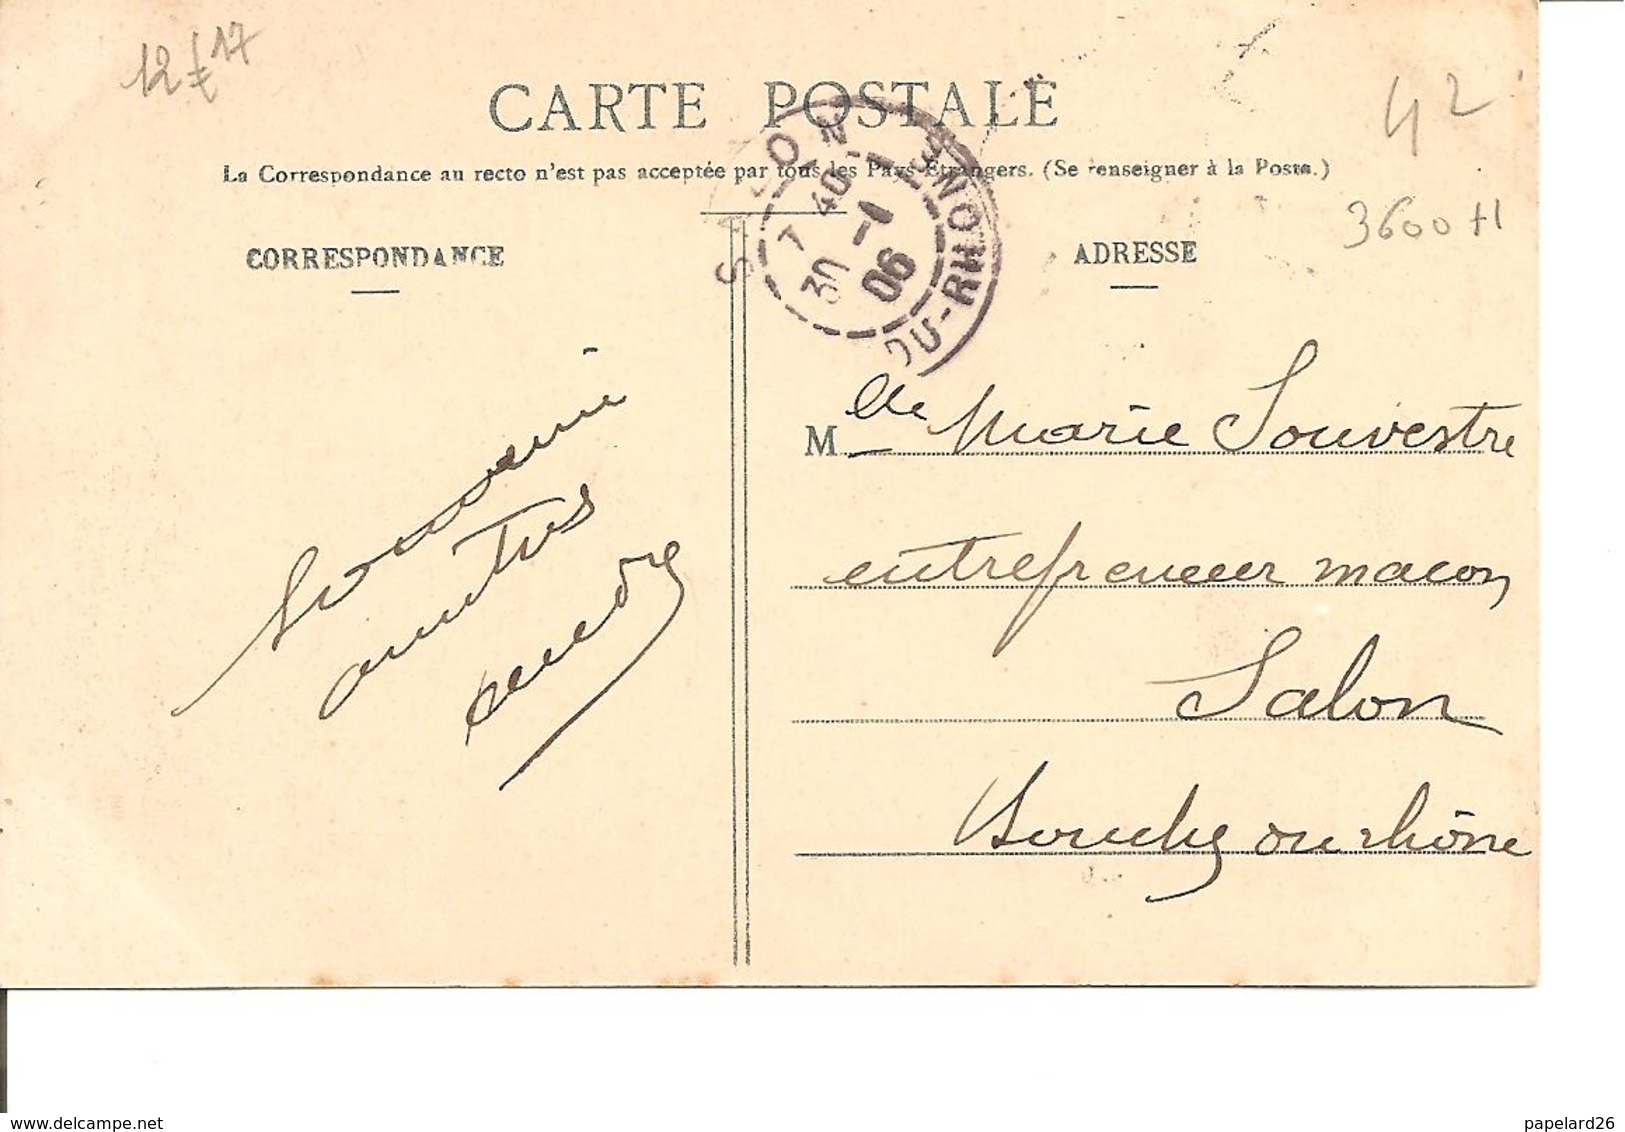 12 € 17
CARTE POSTALE
42
La Correspondance au recto n'est pas acceptée par tous les Pays Etrangers. (Se renseigner à la Poste.)
3600 H
SALON
DU-RHONE
7 40
30 -1
06
CORRESPONDANCE
ADRESSE
Souvenir
M lle Marie Souvestre
entrepreneur macon
Salon
Bouches du rhône
papelard26